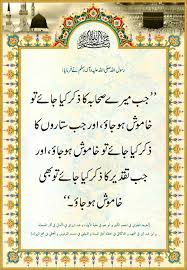 بسم الله الرحمن الرحيم
رسول اللہ صلی اللہ علیہ وآلہ وسلم نے فرمایا:
”جب میرے صحابہ کا ذکر کیا جائے تو
خاموش ہوجاؤ، اور جب ستاروں کا
ذکر کیا جائے تو خاموش ہوجاؤ، اور
جب تقدیر کا ذکر کیا جائے تو بھی
خاموش ہوجاؤ۔“